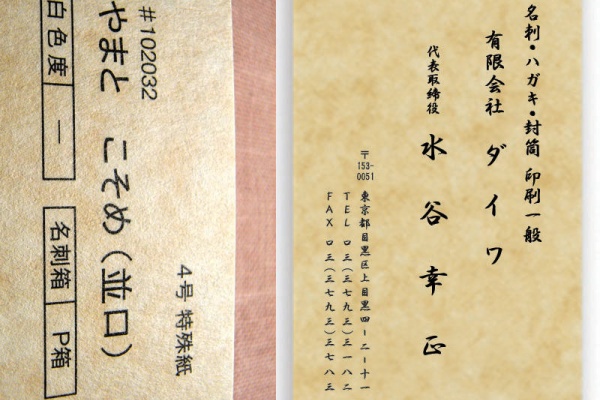 #102032
やまと こそめ(並口)
白色度 一 名刺箱 P箱
4号 特殊紙
名刺・ハガキ・封筒 印刷一般
有限会社 ダイワ
代表取締役 水谷幸正
〒153-0051
東京都目黒区上目黒四ー二ー十一
TEL 〇三(三七九三)三一八二
FAX 〇三(三七九三)三七八三